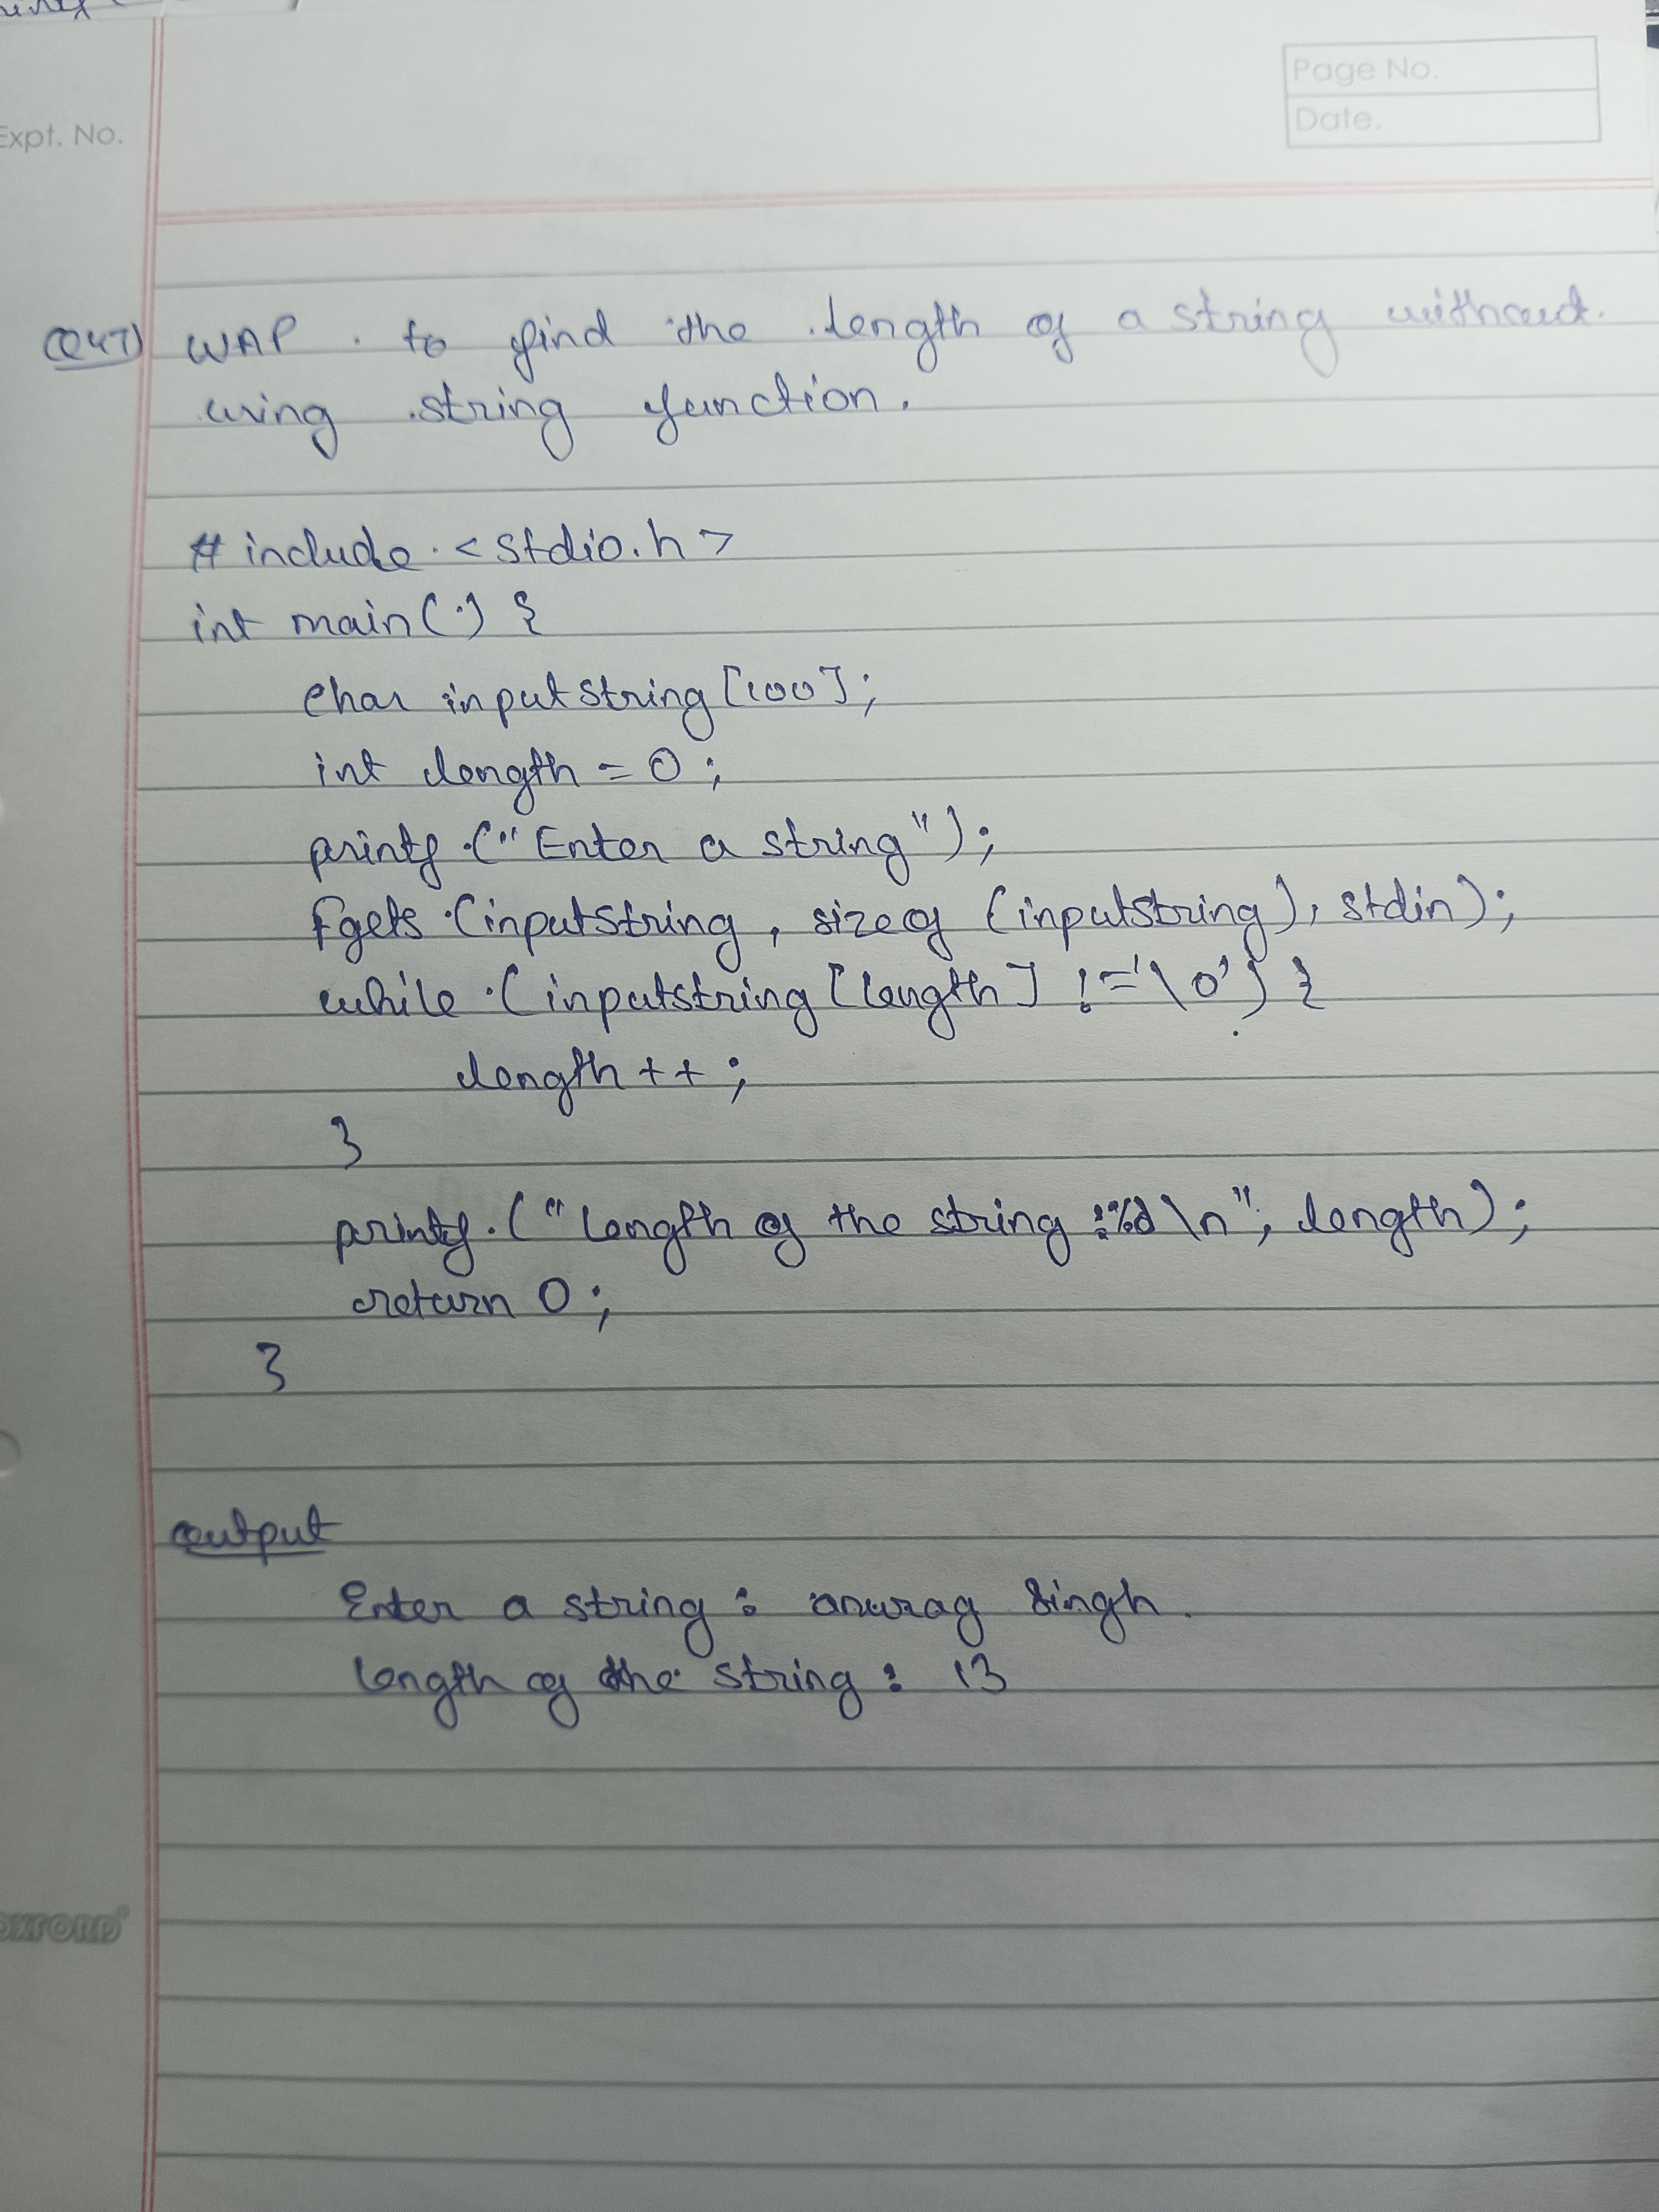 Page No.
Date.
Expt. No.
Q47) WAP to find the length of a string without
using string function.
#include <stdio.h>
int main() {
char inputstring[100];
int length = 0;
printf("Enter a string");
fgets(inputstring, sizeof(inputstring), stdin);
while(inputstring[length] != '\0') {
length++;
}
printf("Length of the string :%d\n", length);
return 0;
}
Output
Enter a string : anurag Singh.
Length of the string : 13
OXFORD